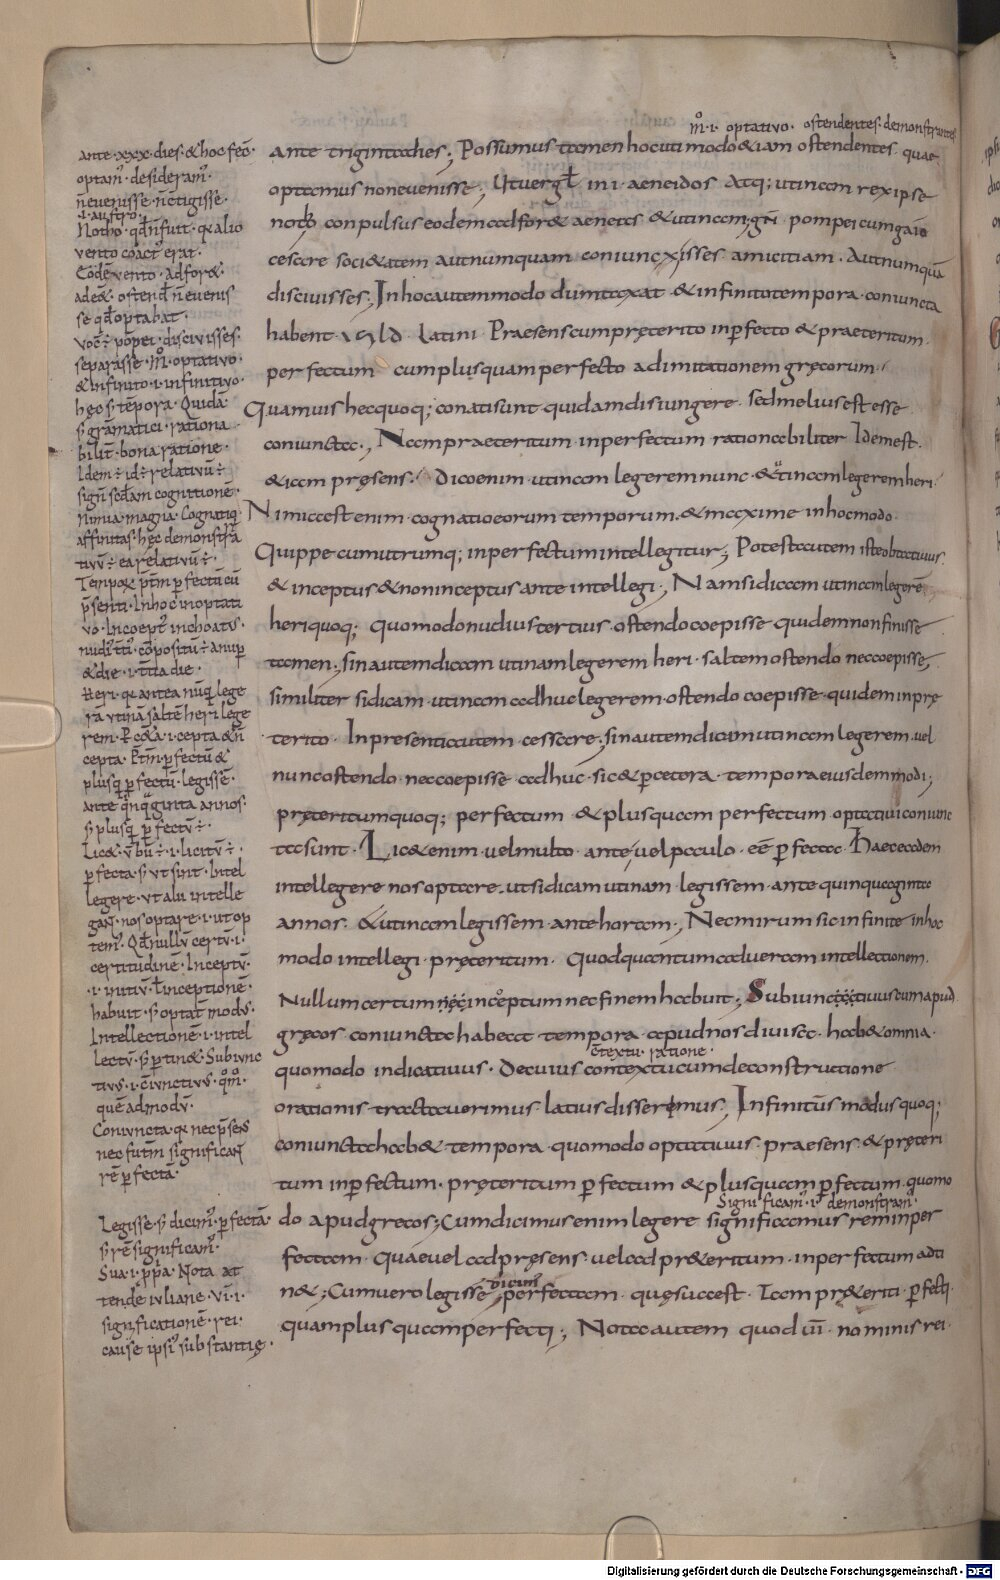 m̊ · i · optativo · ostendentes · demonstrantes
ante triginta dies ; Possumus tamen hoc uti modo & iam ostendentes quae
optamus non evenisse ; Ut vergł in · i · aeneidos Atq; utinam rex ipse
noto conpulsus eodem adfor& aeneas & utinam pompei cum gaio
cesare soci&atem aut numquam coniunxisses amicitiam · Aut numquā
discivisses ; In hoc autem modo dumtaxat & infinito tempora coniuncta
habent Latini · Praesens cum pręterito inperfecto & praeteritum
perfectum cum plusquamperfecto ad imitationem gręcorum
Quamvis hec quoq; conati sunt quidam disiungere · sed melius est esse
coniuncta ; Nam praeteritum inperfectum rationabiliter Idem est
& iam pręsens · Dico enim utinam legerem nunc · & utinam legerem heri
Nimia est enim cognatio eorum temporum · & maxime in hoc modo
Quippe cum utrumq; inperfectum intellegitur ; Potest autem iste obtativus
& inceptus & non inceptus ante intellegi ; Nam si dicam utinam legerē
heri quoq; quomodo nudius tertius ostendo coepisse quidem non finisse
tamen ; sin autem dicam utinam legerem heri · saltem ostendo nec coepisse ;
similiter si dicam utinam adhuc legerem ostendo coepisse quidem in prę
terito · In presenti autem cessare ; sin autem dicam utinam legerem vel
nunc ostendo nec coepisse adhuc · sic & p cetera tempora eiusdem modi ;
pręteritum quoq; perfectum & plusquam perfectum optativi coniunc
ta sunt · Lic& enim vel multo ante vel paulo eē pfecta · Haec eadem
intellegere nos optare · ut si dicam utinam legissem ante quinquaginta
annos · & utinam legissem ante horam ; Nec mirum sic infinite in hoc
modo intellegi pręteritum · Quod quantum ad veram intellectionem
Nullum certum inceptum nec finem habuit ; Subiunctivus cum apud
gręcos coniuncta habeat tempora apud nos divisa · hab& omnia
c̄textu · ratione
quomodo indicativus · De cuius contextu cum de constructione
orationis tractaverimus latius disseremus · Infinitus modus quoq;
coniuncta hab& tempora quomodo optativus · praesens & pręteri
tum inpfectum · pręteritum pfectum & plusquam pfectum quomo
significam̄ · i · demonstram̄
do apud grecos ; Cum dicimus enim legere significamus rem inper
fectam · Quae vel ad pręsens vel ad pr&eritum inperfectum adti
dicim̄
n& ; Cum vero legisse perfectam quę succest · Iam pr&eriti pfecti
quam plusquamperfecti ; Nota autem quod ui nominis rei
ante · xxx · dies · & hoc feō ·
optam̄ · desideram̄ ·
n̄ evenisse n̄ c̄tigisse ·
· i · austro ·
Notho · qđ n̄ fuit · q alio
vento coact erat ·
Codē vento · Adfor& ·
ade& · ostenđ n̄ evenis
se qđ optabat ·
pōpei · discivisses ·
separasse · m̊ · optativo ·
& infinito · i · infinitivo ·
hęc s · tēpora · Quidā
s gramatici · rationa
bilit̄ · bona ratione ·
Idem ÷ id ÷ relativū ÷
sign̄ scđam cognitionē ·
Nimia · magna · Cognatio
affinitas · hęc demonstra
tivū ÷ ea relativū ÷ ·
Tempoꝝ p̄t̄m pfectū cū
p̄senti · In hoc in optati
vo · Incoept inchoatus ·
nudi tti cōpositū ÷ a nup
& die · i · ttia die ·
Heri · q antea nūq lege
rā utinā saltē heri lege
rem · & cęta · i · cepta & n̄
cepta · P̄t̄m pfectū &
plusq pfectū · legissē ·
ante qnqginta annos ·
s plusq pfectū ÷ ·
Lic& · ūbū ÷ · i · licitū ÷ ·
pfecta · s · ut sint · Intel
legere · ut alii intelle
gan̄ · nos optare · i · ut op
tem̄ · Qđ nullū certū · i ·
certitudinē · Inceptū ·
· i · initiū ł inceptionē ·
habuit · s optat modus ·
Intellectionē · i · intel
lectū · s ptin& · Subiunc
tivus · i · c̄iunctivus · qm̊ ·
quēadmodū ·
Coniuncta · q nec p̄sens
nec futm̄ significan̄
rē pfectā ·
Legisse · s · dicim̄ · pfectā ·
s · rē significam̄ ·
Sua · i · ppa · Nota · at
tende iuliane · vi · i ·
significationē · rei ·
causę ipsi substantię ·
Digitalisierung gefördert durch die Deutsche Forschungsgemeinschaft - DFG